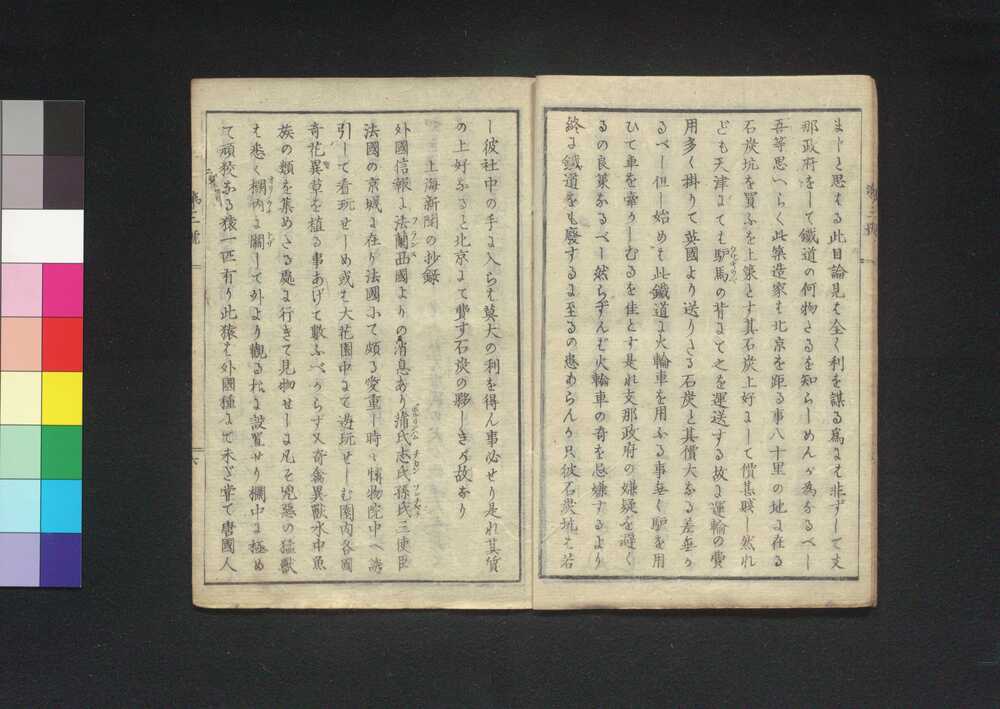 まじと思はる此目論見も全く利を謀る為にも非ずして支
那政府をして鐵道の何物たるを知らしめんが為なるべし
吾等思へらく此築造家も北京を距る事八十里の地に在る
石炭坑を買ふを上策とす其石炭上好にして價甚賤し然れ
ども天津まても驢馬の背にて之を運送する故に運輸の費
用多く掛りて英國より送りたる石炭と其價大なる差無か
るべし但し始めも此鐵道に火輪車を用ふる事無く驢を用
ひて車を牽かしむるを佳とす是れ支那政府の嫌疑を避く
るの良策なるべし然らずんば火輪車の奇を忌嫌するより
終に鐵道をも廢するに至るの患あらんか只彼石炭坑も若
し彼社中の手に入らば莫大の利を得ん事必せり是れ其質
の上好なると北京にて費す石炭の夥しきが故なり
上海新聞の抄録
外國信報に法蘭西國よりの消息あり蒲氏志氏孫氏三使臣
法國の京城に在り法國にて頗る愛重し時々博物院中へ誘
引して看玩せしめ或は大花園中にて遊玩せしむ園内各國
奇花異草を植る事あげて數ふべからず又奇禽異獸水中魚
族の類を集めたる處に行きて見物せしに凡そ兇惡の猛獸
は悉く欄内に關して外より觀る様に設置せり欄中に極め
て頑狡なる猿一匹有り此猿は外國種にて未だ甞て唐國人